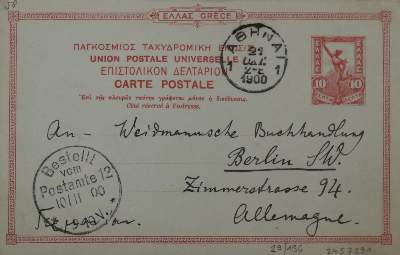 ΕΛΛΑΣ GRECE
ΠΑΓΚΟΣΜΙΟΣ ΤΑΧΥΔΡΟΜΙΚΗ
UNION POSTALE UNIVERSELLE
ΕΠΙΣΤΟΛΙΚΟΝ ΔΕΛΤΑΡΙΟΝ
CARTE POSTALE
Ἐπὶ τῆς πλευρᾶς ταύτης γράφεται μόνον ἡ διεύθυνσις.
Côté réservé à l'adresse.
ΑΘΗΝΑΙ
1 1
21
1900
10 10
An - Weidmannsche Buchhandlung
Berlin S.W.
Zimmerstrasse 94.
Allemagne.
Bestellt
vom
Postamte 12
00
29/196